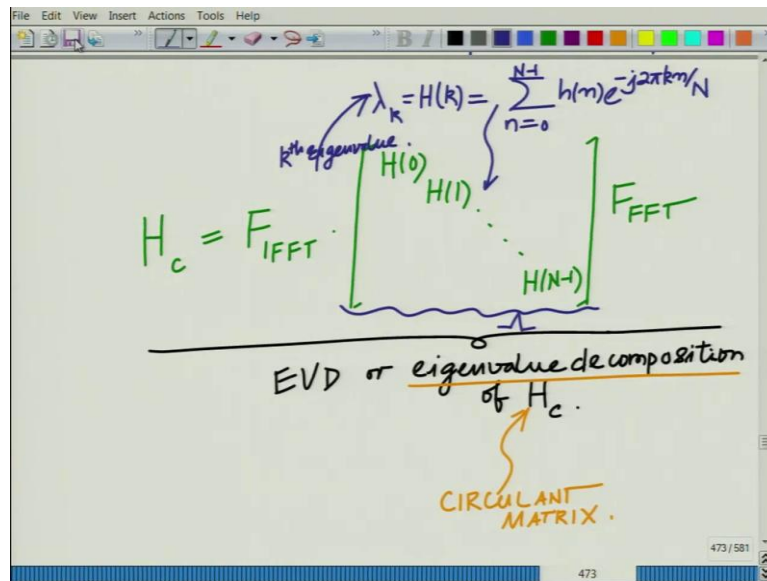 File Edit View Insert Actions Tools Help
B I
λ_k = H(k) = ∑_{n=0}^{N-1} h(n)e^{-j2πkn/N}
k^th eigenvalue.
H(0)
H(1)
H_c = F_IFFT · [ ⋱ ] F_FFT
H(N-1)
EVD or eigenvalue decomposition
of H_c.
CIRCULANT
MATRIX.
473/581
473